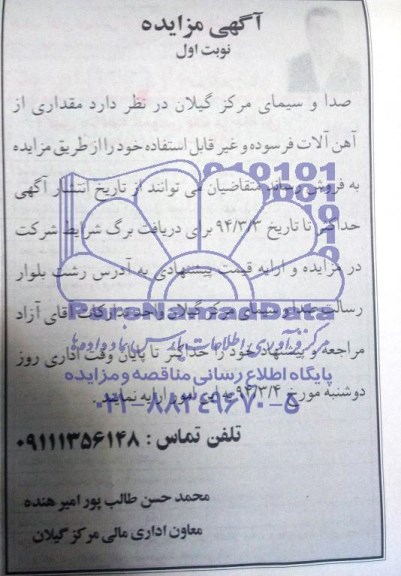 آگهی مزایده
نوبت اول
صدا و سیمای مرکز گیلان در نظر دارد مقداری از
آهن آلات فرسوده و غیر قابل استفاده خود را از طریق مزایده
به فروش رساند متقاضیان می توانند از تاریخ انتشار آگهی
حداکثر تا تاریخ ۹۴/۳/۳ برای دریافت برگ شرایط شرکت
در مزایده و ارایه قیمت پیشنهادی به آدرس رشت بلوار
رسالت صدا و سیمای مرکز گیلان واحد تدارکات آقای آزاد
مراجعه و پیشنهاد خود را حداکثر تا پایان وقت اداری روز
دوشنبه مورخ ۹۴/۳/۴ به این امور ارایه نمایند.
تلفن تماس : ۰۹۱۱۱۳۵۶۱۴۸
محمد حسن طالب پور امیر هنده
معاون اداری مالی مرکز گیلان
پایگاه اطلاع رسانی مناقصه و مزایده
۰۲۱-۸۸۳۴۹۶۷۰-۵